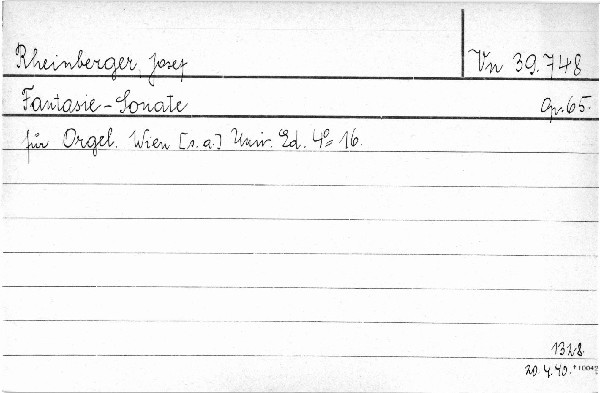 Rheinberger, Josef
Vn 39.748
Fantasie-Sonate
Op. 65.
für Orgel. Wien [s.a.] Univ. Ed. 4° 16.
1328
20.4.40.